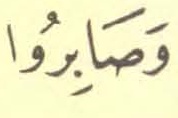 وَصَابِرُوا